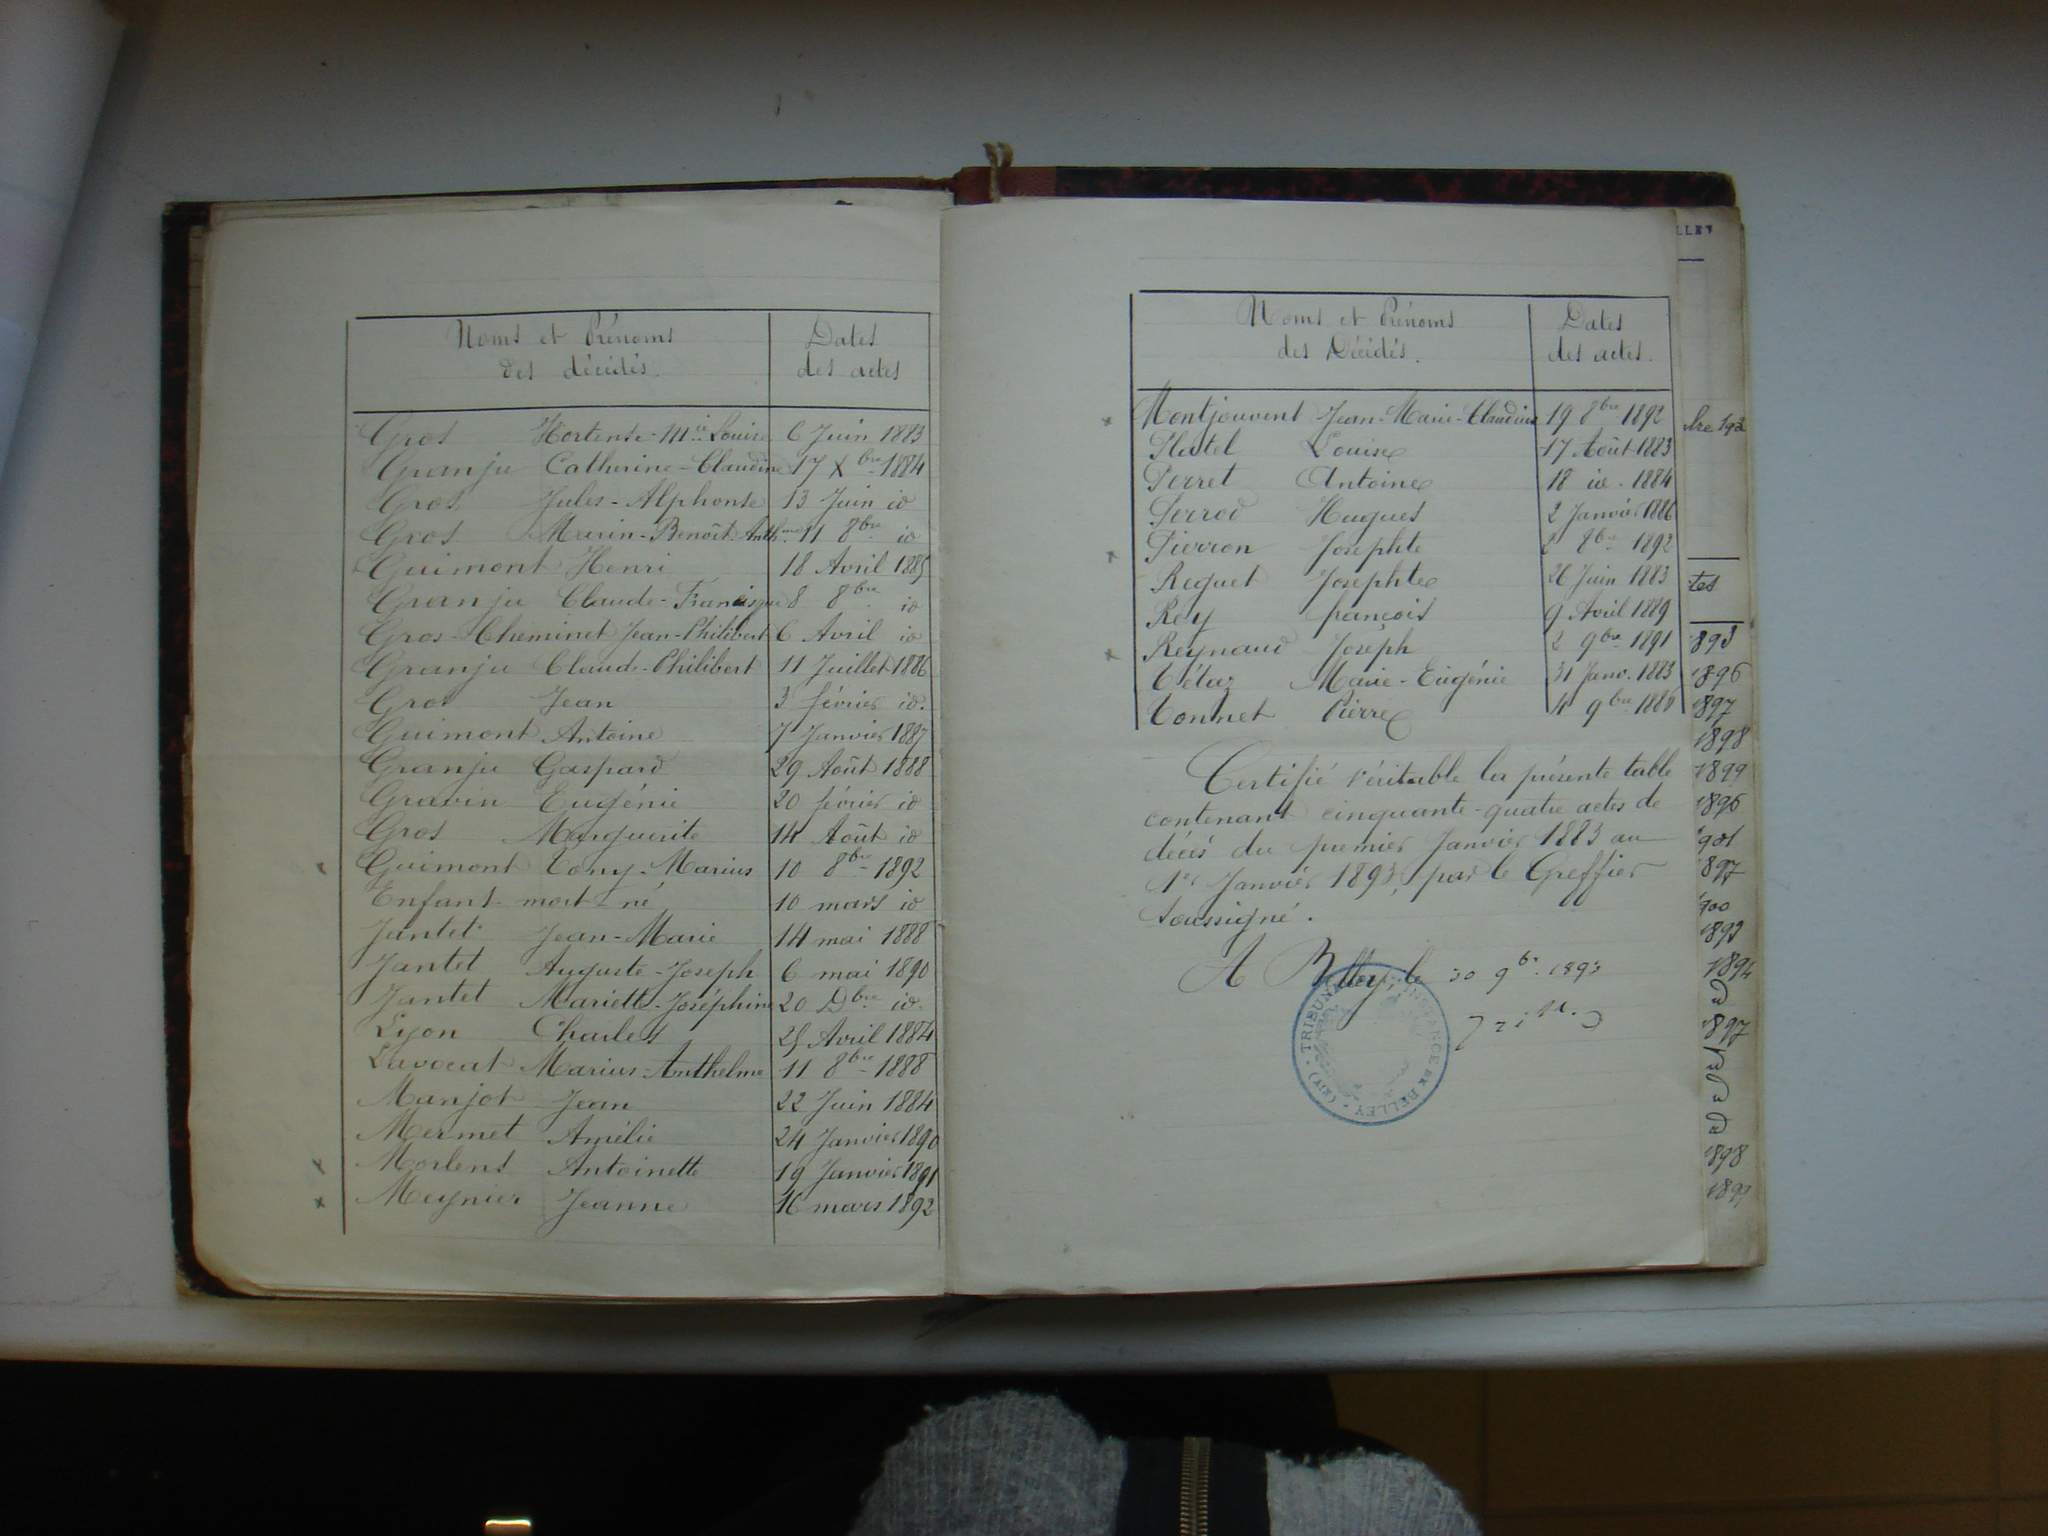 Noms et Prénoms
des décédés.
Dates
des actes
Gros Hortense-Mie Louise 6 Juin 1883
Granju Catherine-Claudine 17 Xbre 1884
Gros Jules-Alphonse 13 Juin id
Gros Marin-Benoît-Anthme 11 8bre id
Guimont Henri 18 Avril 1885
Granju Claude-Francisque 8 8bre id
Gros-Cheminet Jean-Philibert 6 Avril id
Granju Claude-Philibert 11 Juillet 1886
Gros Jean 3 février id.
Guimont Antoine 7 Janvier 1887
Granju Gaspard 29 Août 1888
Gravin Eugénie 20 février id
Gros Marguerite 14 Août id
Guimont Tony-Marius 10 8bre 1892
Enfant mort-né 10 mars id
Jantet Jean-Marie 14 mai 1888
Jantet Auguste-Joseph 6 mai 1890
Jantet Mariette-Joséphine 20 Dbre id.
Lyon Charles 25 Avril 1884
Lavocat Marius-Anthelme 11 8bre 1888
Manjot Jean 22 Juin 1884
Mermet Amélie 24 Janvier 1890
x Morlens Antoinette 19 Janvier 1891
x Meynier Jeanne 16 mars 1892
Noms et Prénoms
des Décédés.
Dates
des actes.
x Montjouvent Jean-Marie-Claudius 19 8bre 1892
Platel Louise 17 Août 1883
Perret Antoine 18 id. 1884
Perrod Hugues 2 Janvier 1886
x Pierron Josephte 2 8bre 1892
Reguet Josephte 26 Juin 1883
Rey françois 9 Avril 1889
x Reynaud Joseph 2 9bre 1891
Tétaz Marie-Eugénie 31 Janv. 1883
Tonnet Pierre 4 9bre 1886
Certifié véritable la présente table
contenant cinquante-quatre actes de
décès du premier Janvier 1883 au
1er Janvier 1893, par le Greffier
soussigné.
A Belley, le 30 9bre 1893
TRIBUNAL INSTANCE DE BELLEY
LLEY
tes
1893
1896
1897
1898
1899
1896
1901
1897
1900
1893
1894
1897
1898